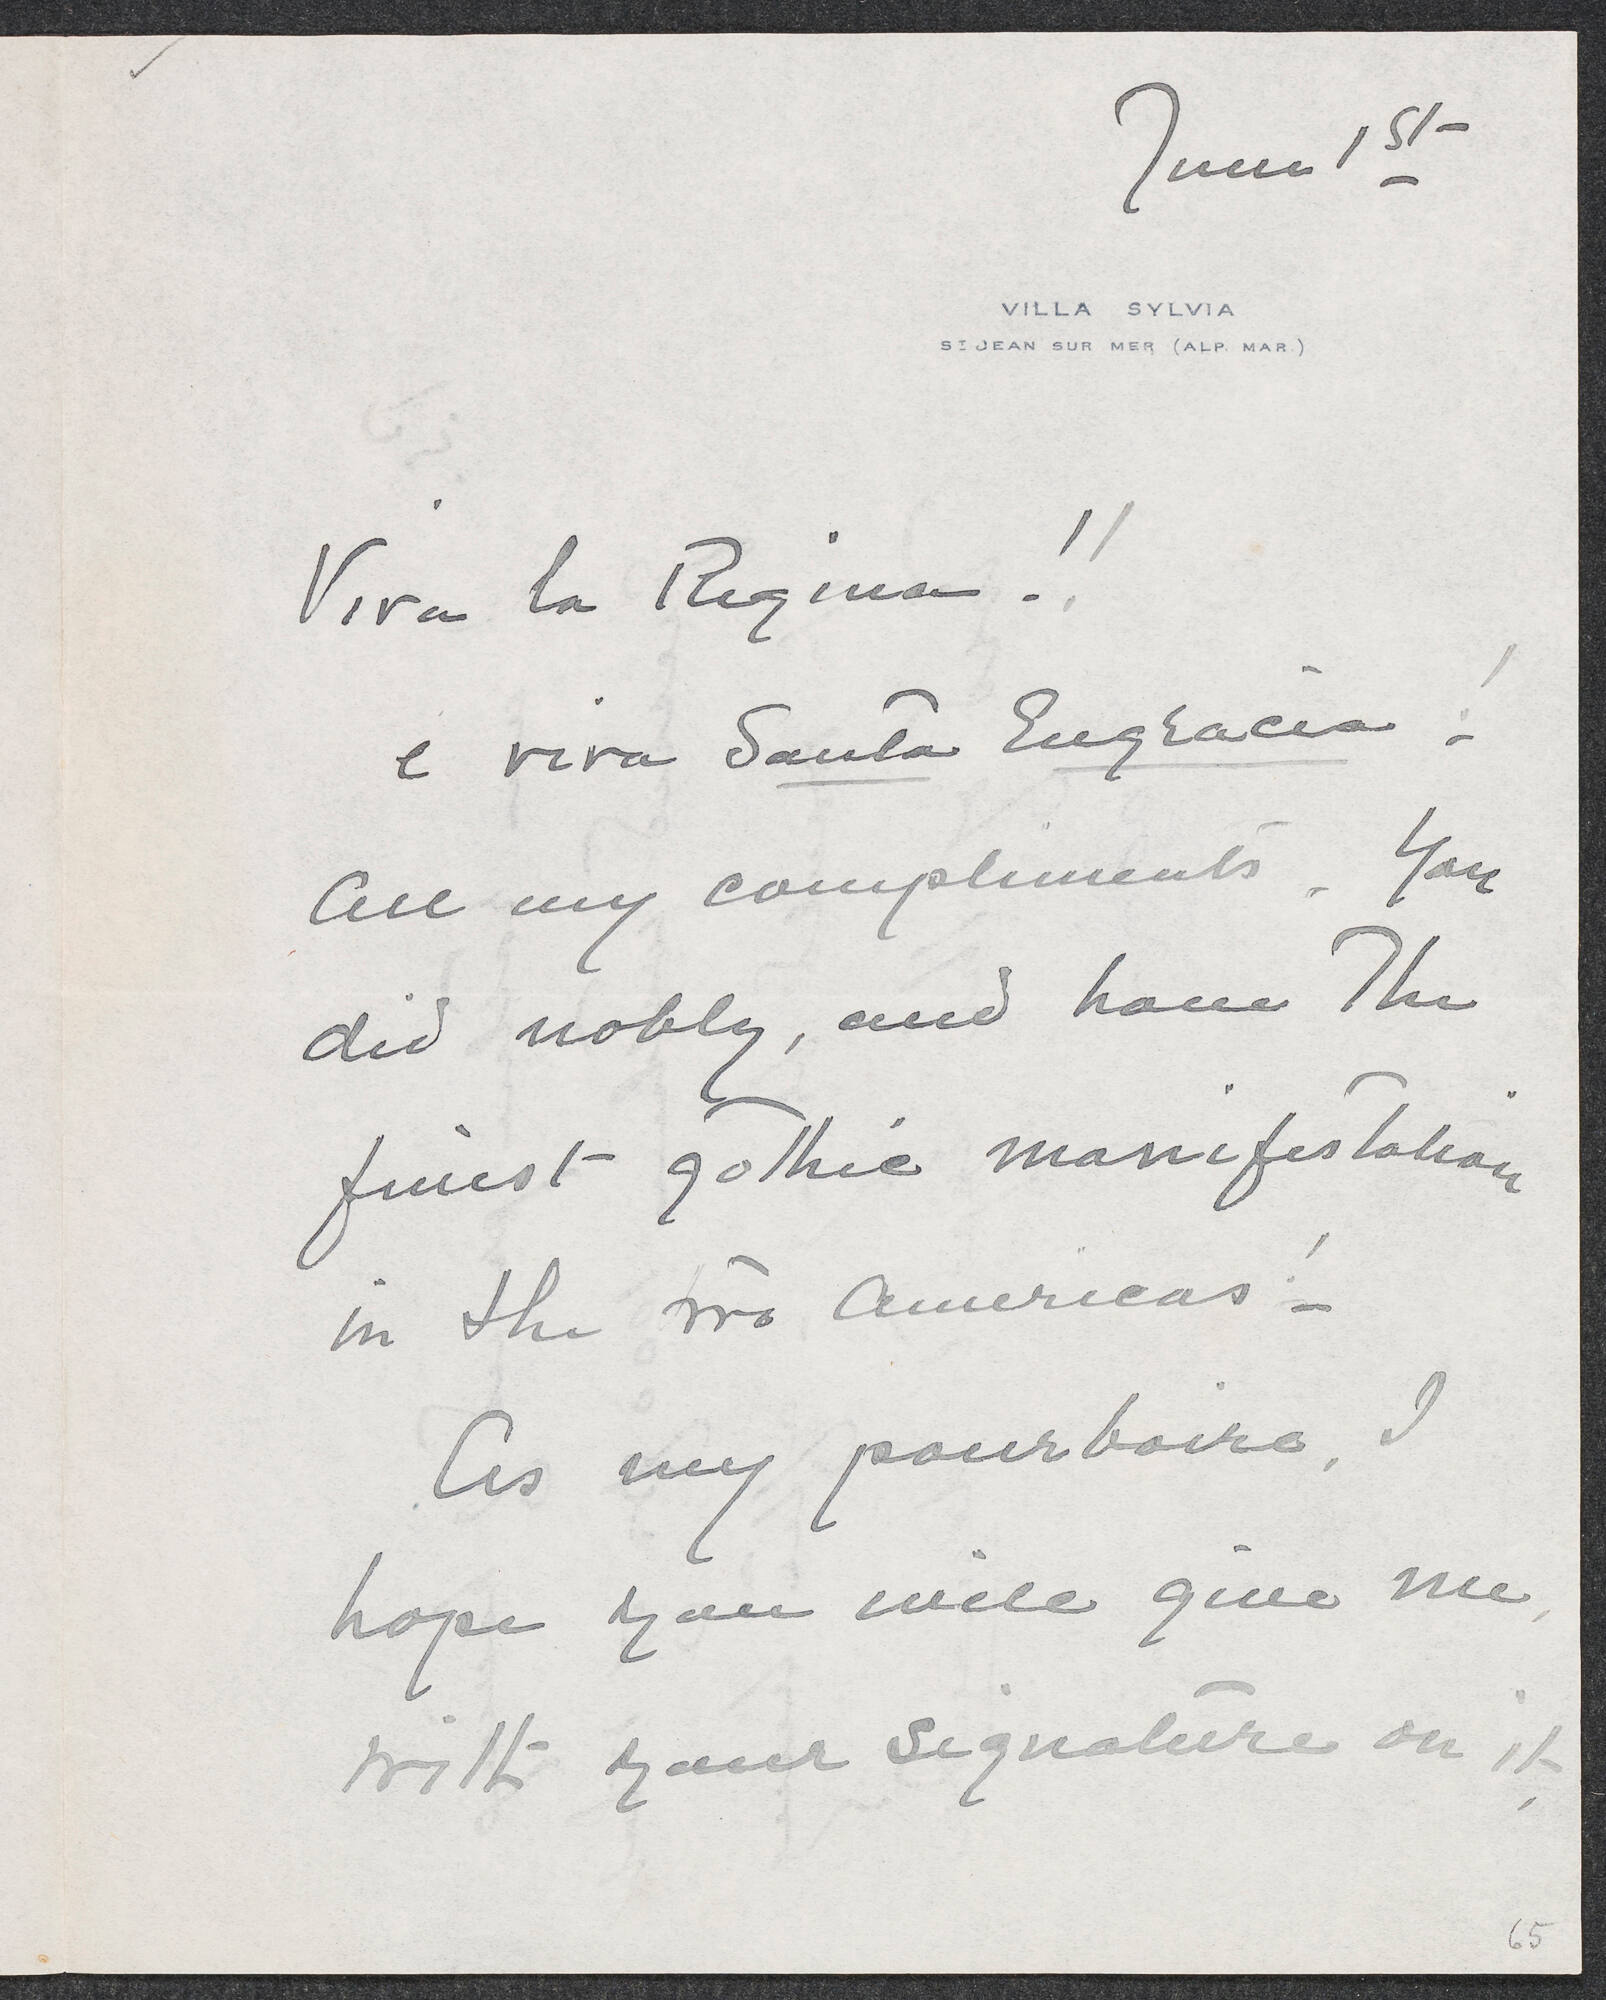 June 1st
VILLA SYLVIA
ST JEAN SUR MER (ALP. MAR.)
Viva la Regina!!
e viva Santa Engracia!
All my compliments. You
did nobly, and have the
finest gothic manifestation
in the two Americas!
As my pourboire, I
hope you will give me,
with your signature on it,
65